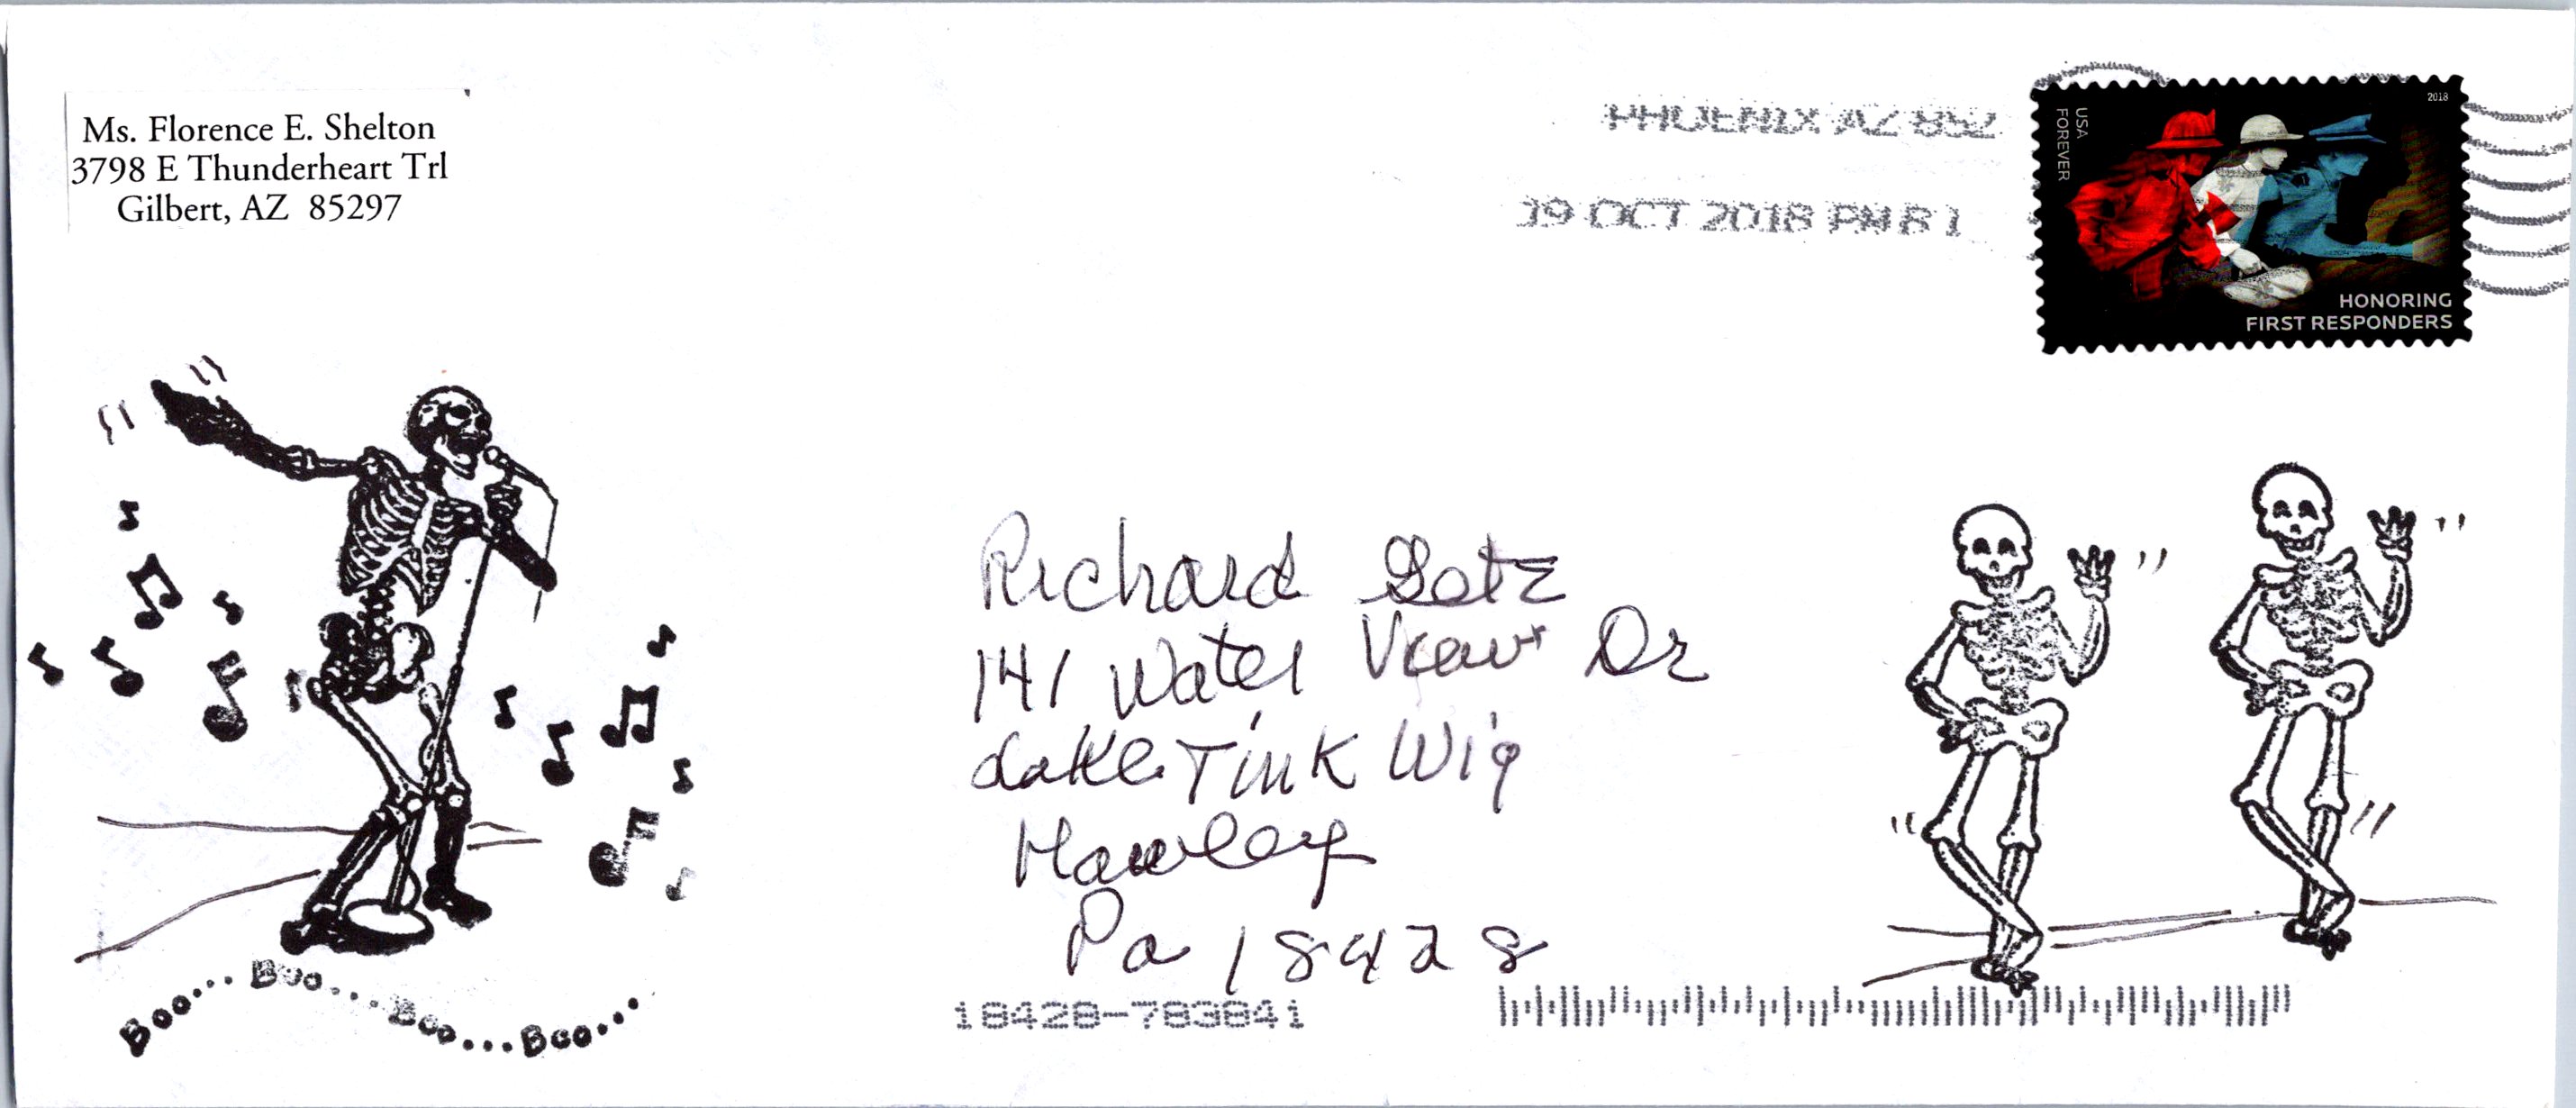 Ms. Florence E. Shelton
3798 E Thunderheart Trl
Gilbert, AZ 85297
PHOENIX AZ 852
19 OCT 2018 PM 8 1
USA
FOREVER
2018
HONORING
FIRST RESPONDERS
Richard Gotz
141 Water View Dr
Lake Tink Wig
Hawley
Pa 18428
18428-783841
Boo... Boo.... Boo....Boo...